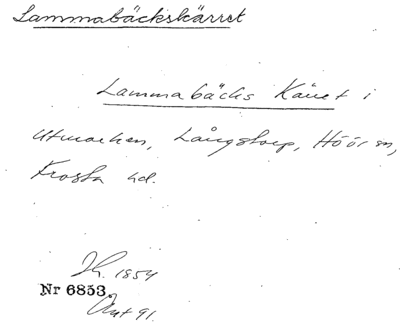 Lammabäckskärret
Lammabäcks Käret i
Utmarken, Långstorp, Höör sn,
Frosta hd.
Jh. 1854
Nr 6853.
Avt 91.